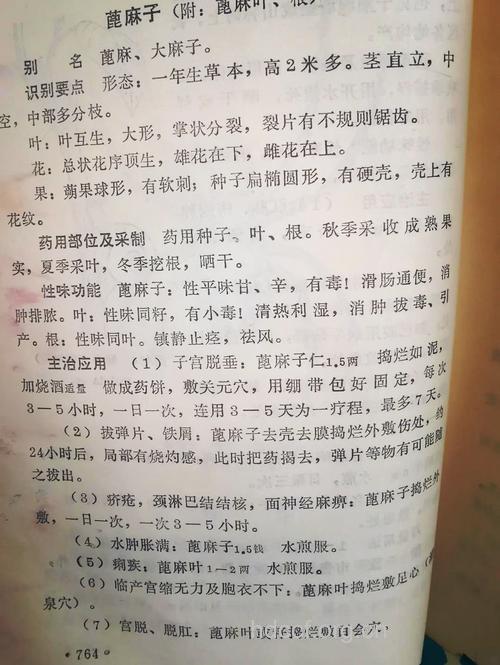 蓖麻子（附：蓖麻叶、根）
别 名 蓖麻、大麻子。
识别要点 形态：一年生草本，高2米多。茎直立，中
空，中部多分枝。
叶：叶互生，大形，掌状分裂，裂片有不规则锯齿。
花：总状花序顶生，雄花在下，雌花在上。
果：蒴果球形，有软刺；种子扁椭圆形，有硬壳，壳上有
花纹。
药用部位及采制 药用种子、叶、根。秋季采收成熟果
实，夏季采叶，冬季挖根，晒干。
性味功能 蓖麻子：性平味甘、辛，有毒！滑肠通便，消
肿排脓。叶：性味同籽，有小毒！清热利湿，消肿拔毒、引
产。根：性味同叶。镇静止痉，祛风。
主治应用 （1）子宫脱垂：蓖麻子仁1.5两 捣烂如泥，
加烧酒适量 做成药饼，敷关元穴，用绷带包好固定，每次
3—5小时，一日一次，连用3—5天为一疗程，最多7天。
（2）拔弹片、铁屑：蓖麻子去壳去膜捣烂外敷伤处，约
24小时后，局部有烧灼感，此时把药揭去，弹片等物有可能随
之拔出。
（3）疥疮，颈淋巴结结核，面神经麻痹：蓖麻子捣烂外
敷，一日一次，一次3—5小时。
（4）水肿胀满：蓖麻子1.5钱 水煎服。
（5）痫疾：蓖麻叶1—2两 水煎服。
（6）临产宫缩无力及胞衣不下：蓖麻叶捣烂敷足心（
泉穴）。
（7）宫脱、脱肛：蓖麻叶或籽捣烂敷百会穴，
·764·